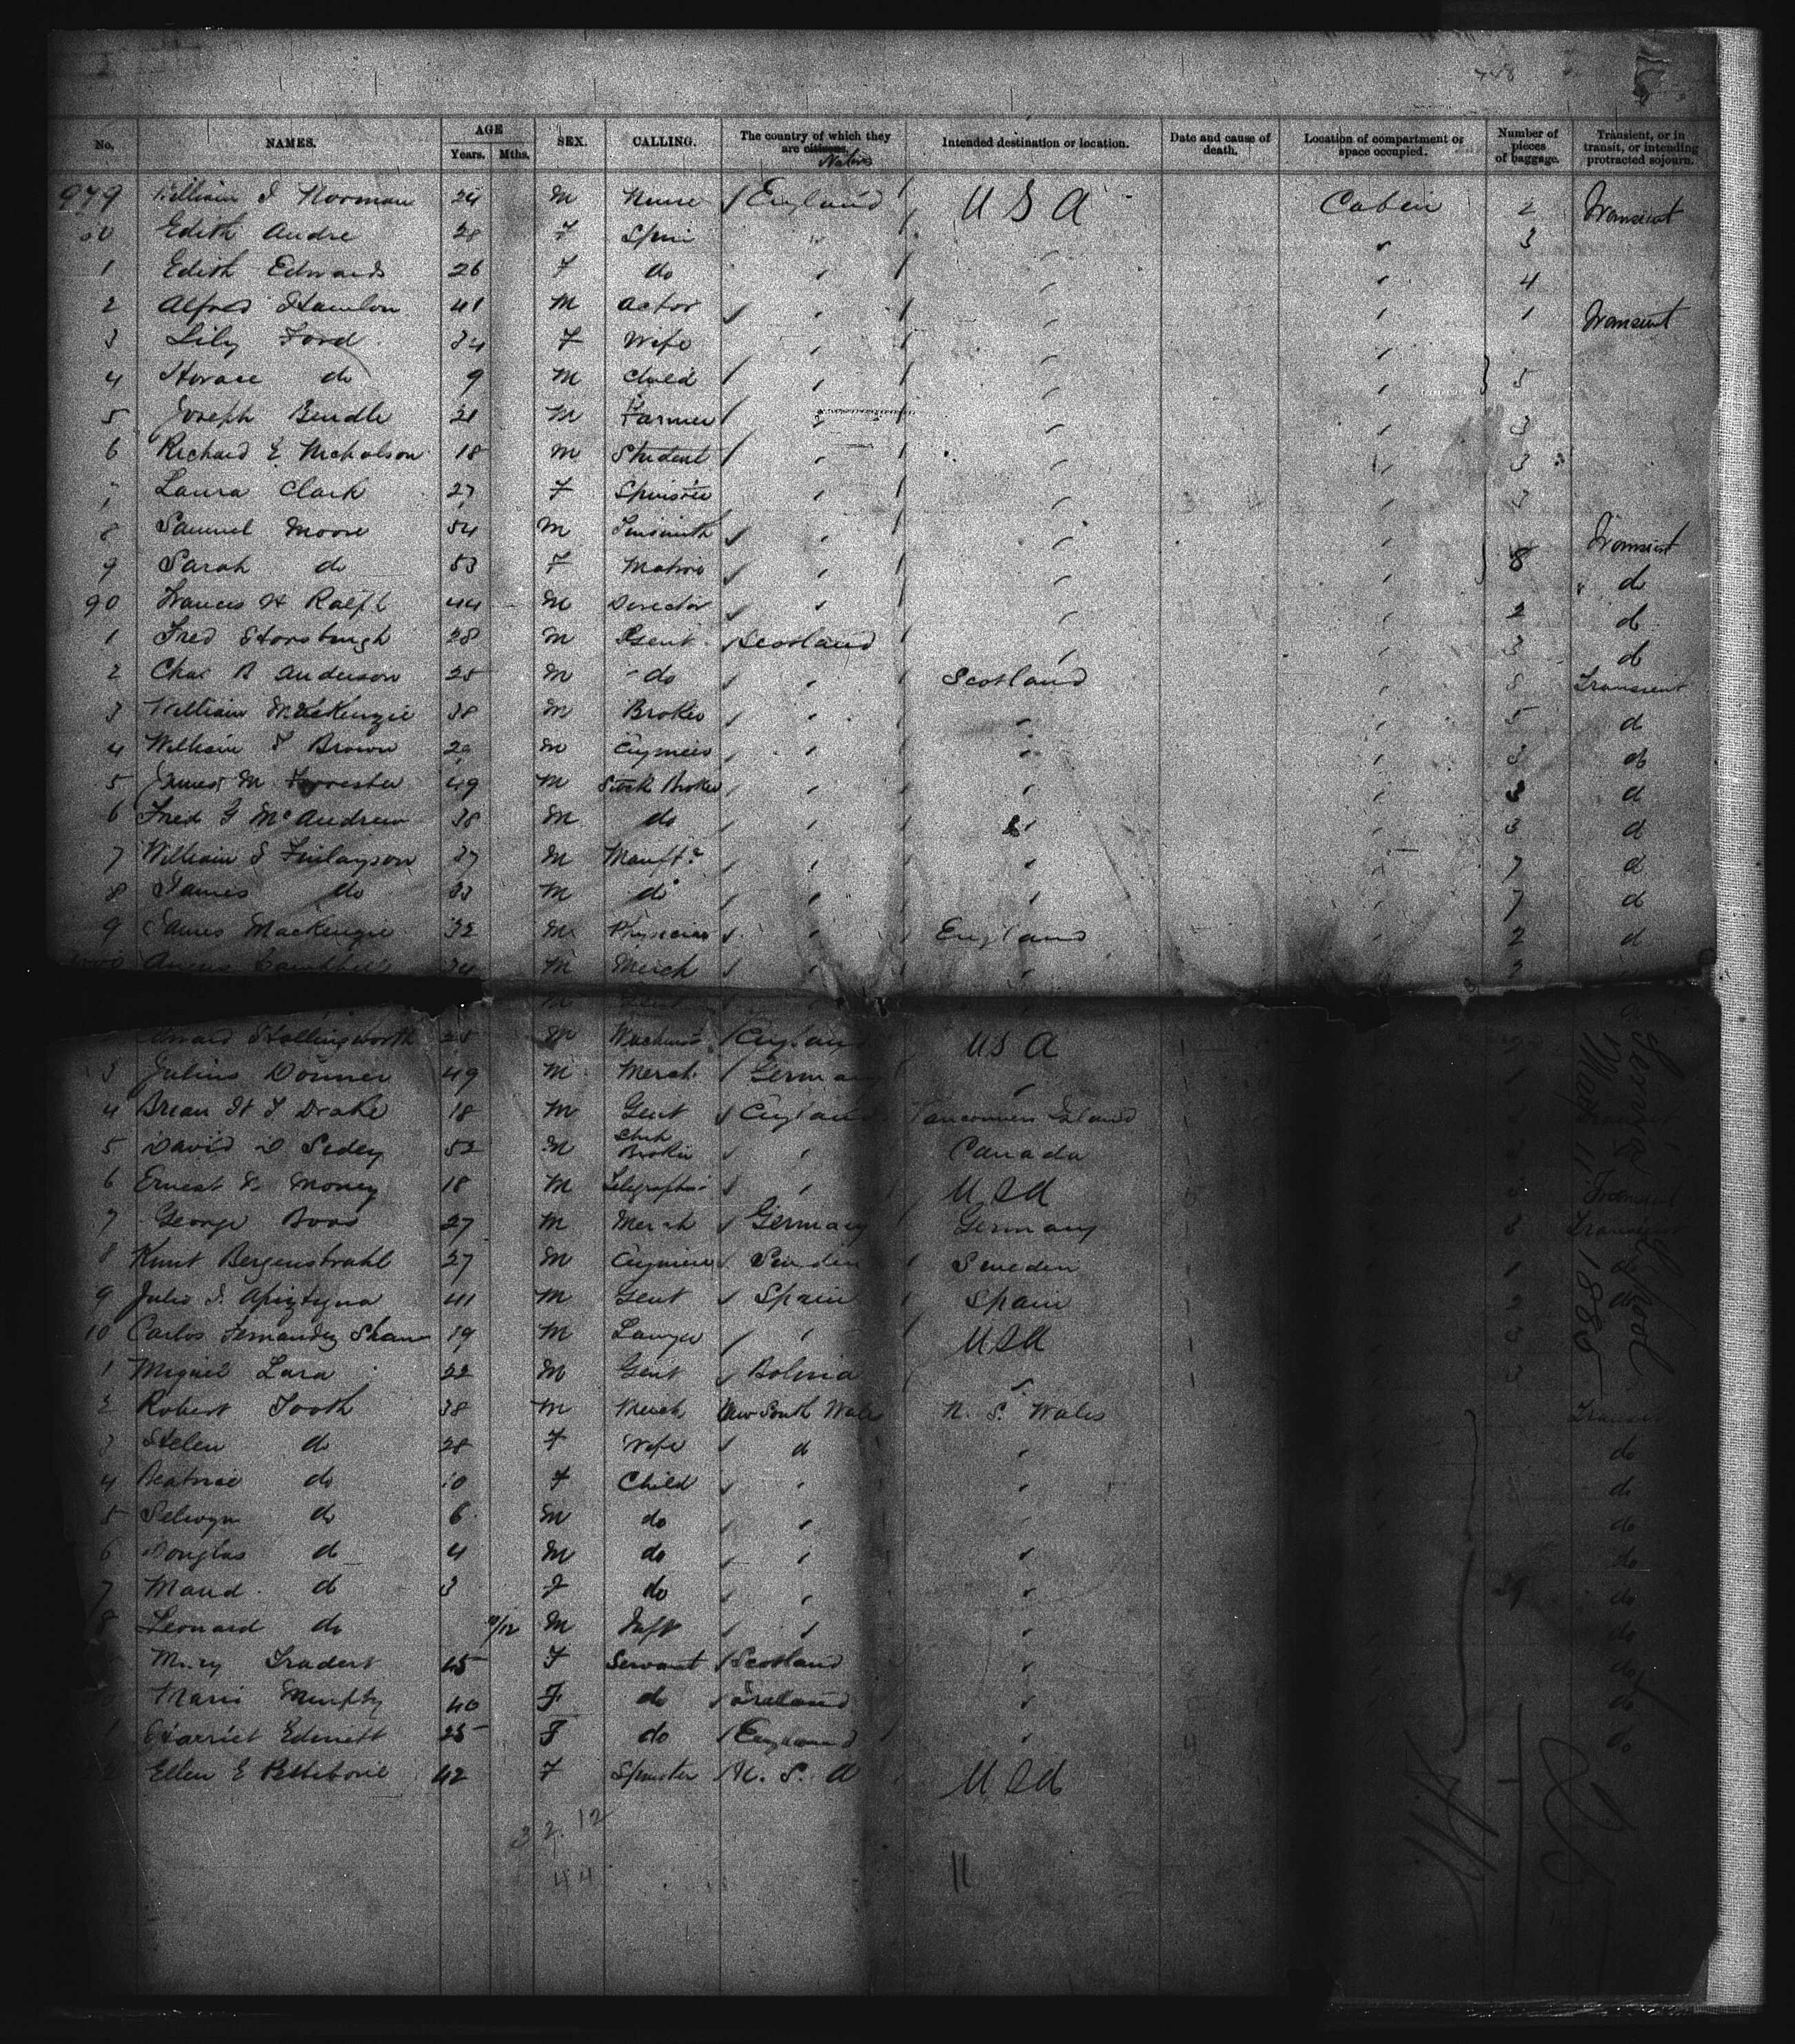 No. NAMES. AGE Years. Mths. SEX. CALLING. The country of which they are citizens. Natives Intended destination or location. Date and cause of death. Location of compartment or space occupied. Number of pieces of baggage. Transient, or in transit, or intending protracted sojourn.
979 William I Norman 24 M Nurse England U S A Cabin 2 Transient
80 Edith Andre 28 F Spin " " " 3
1 Edith Edwards 26 F do " " " 4
2 Alfred Hamlon 41 M Actor " " " 1 Transient
3 Lily Ford 34 F Wife " " "
4 Horace do 9 M Child " " " 5
5 Joseph Bendle 21 M Farmer " " " 3
6 Richard E Nicholson 18 M Student " " " 3
7 Laura Clark 27 F Spinster " " " 3
8 Samuel Moore 54 M " " " Transient
9 Sarah do 53 F Matron " " " 8 do
90 Frances H Ralph 44 M Director " " " 2 do
1 Fred 28 M Gent Scotland " " 3 do
2 Chas R Anderson 25 M do " Scotland " 8 Transient
3 William McKenzie 38 M Broker " " " 5 do
4 William F Brown 29 M Engineer " " " 3 do
5 James M Forrester 49 M Stock Broker " " " 3 do
6 Fred G McAndrew 38 M do " " " 3 do
7 William S Finlayson 37 M Manftr " " " 7 do
8 James do 33 M do " " " 7 do
9 James Mackenzie 32 M Physician " England " 2 do
Angus Campbell 34 M Merch " " " 2
M Gent " "
Hollingsworth 25 M England U S A 2
3 Julius Donner 49 M Merch Germany " 1
4 Brian H T Drake 18 M Gent England Vancouvers Island
5 David D Sedey 52 M Stock Broker " Canada
6 Ernest Money 18 M Telegrapher " U S A Transient
7 George Boos 27 M Merch Germany Germany 3 Transient
8 Knut Bergenstrahl 27 M Engineer Sweden Sweden 1 do
9 Julio I 41 M Gent Spain Spain 2 do
10 Carlos Fernandez Shaw 19 M Lawyer " U S A 3
1 Miguel Lara 22 M Gent Bolivia " 3
2 Robert Tooth 38 M Merch New South Wales N. S. Wales Transit
3 Helen do 28 F Wife do " do
4 Beatrice do 10 F Child " " do
5 Selwyn do 6 M do " " do
6 Douglas do 4 M do " " do
7 Maud do 3 F do " " 39 do
8 Leonard do 9/12 M Inft " " do
Mary 45 F Servant Scotland " do
Marie Murphy 40 F do Ireland " do
1 Harriet Edmett 25 F do England " do
Ellen E Pettebone 42 F Spinster U. S. A U S A
3 2. 12
44 11
Servia L'pool
May 11 1885